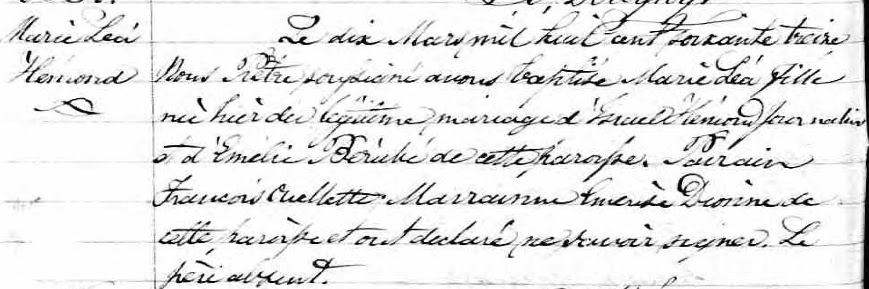 Marie Léa
Hémond
Le dix Mars mil huit cent soixante treize
Nous Prêtre soussigné avons baptisé Marie Léa fille
née hier du légitime mariage d'Israel Hémond journalier
et d'Emélie Bérubé de cette paroisse. Parrain
Francois Ouellette Marrainne Emerise Dionne de
cette paroisse et ont declaré ne savoir signer. Le
père absent.